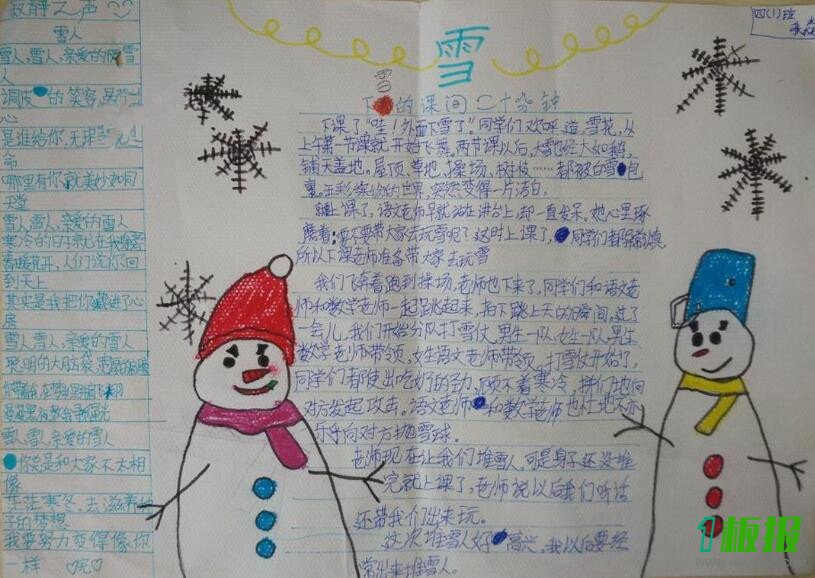 寂静之声
雪人
雪人，雪人，亲爱的雪
人
调皮的笑容，是
心
是谁给你，无
命
哪里有你就美妙如同
天堂
雪人，雪人，亲爱的雪人
寒冷的日子就在我
春暖花开，人们说你回
到天上
其实是我把你藏进了心
房
雪人，雪人，亲爱的雪人
聪明的大脑袋
雪人，雪人，亲爱的雪人
你总是和大家不太相
像
茫茫寒冬，去滋养种
子的梦想
我要努力变得像你
一样 完
四(1)班
雪
雪
下的课间二十分钟
下课了“哇！外面下雪了”。同学们欢呼道，雪花，从
上午第一节课就开始飞舞。两节课以后，大雪已经大如鹅，
铺天盖地。屋顶、草地、操场、树枝……都被白雪包
裹。五彩缤纷的世界，突然变得一片洁白。
上课了，语文老师早就站在讲台上，却一直发呆。她心里琢
磨着：要不要带大家去玩雪呢？这时上课了，同学们都
所以下课老师准备带大家去玩雪
我们飞奔着跑到操场，老师也下来了，同学们和语文老
师和数学老师一起跳起来，拍下跳上去的瞬间，过了
一会儿，我们开始分队打雪仗，男生一队，女生一队，男生
数学老师带领，女生语文老师带领，打雪仗开始了，
同学们都使出吃奶的劲，顾不着寒冷，拼们地向
对方发起攻击。语文老师和数学老师也忙地不亦
乐乎向对方抛雪球。
老师现在让我们堆雪人，可是身子还没堆
完就上课了，老师说以后我们听话
还带我们出来玩。
这次堆雪人好高兴，我以后要经
常出来堆雪人。
1板报